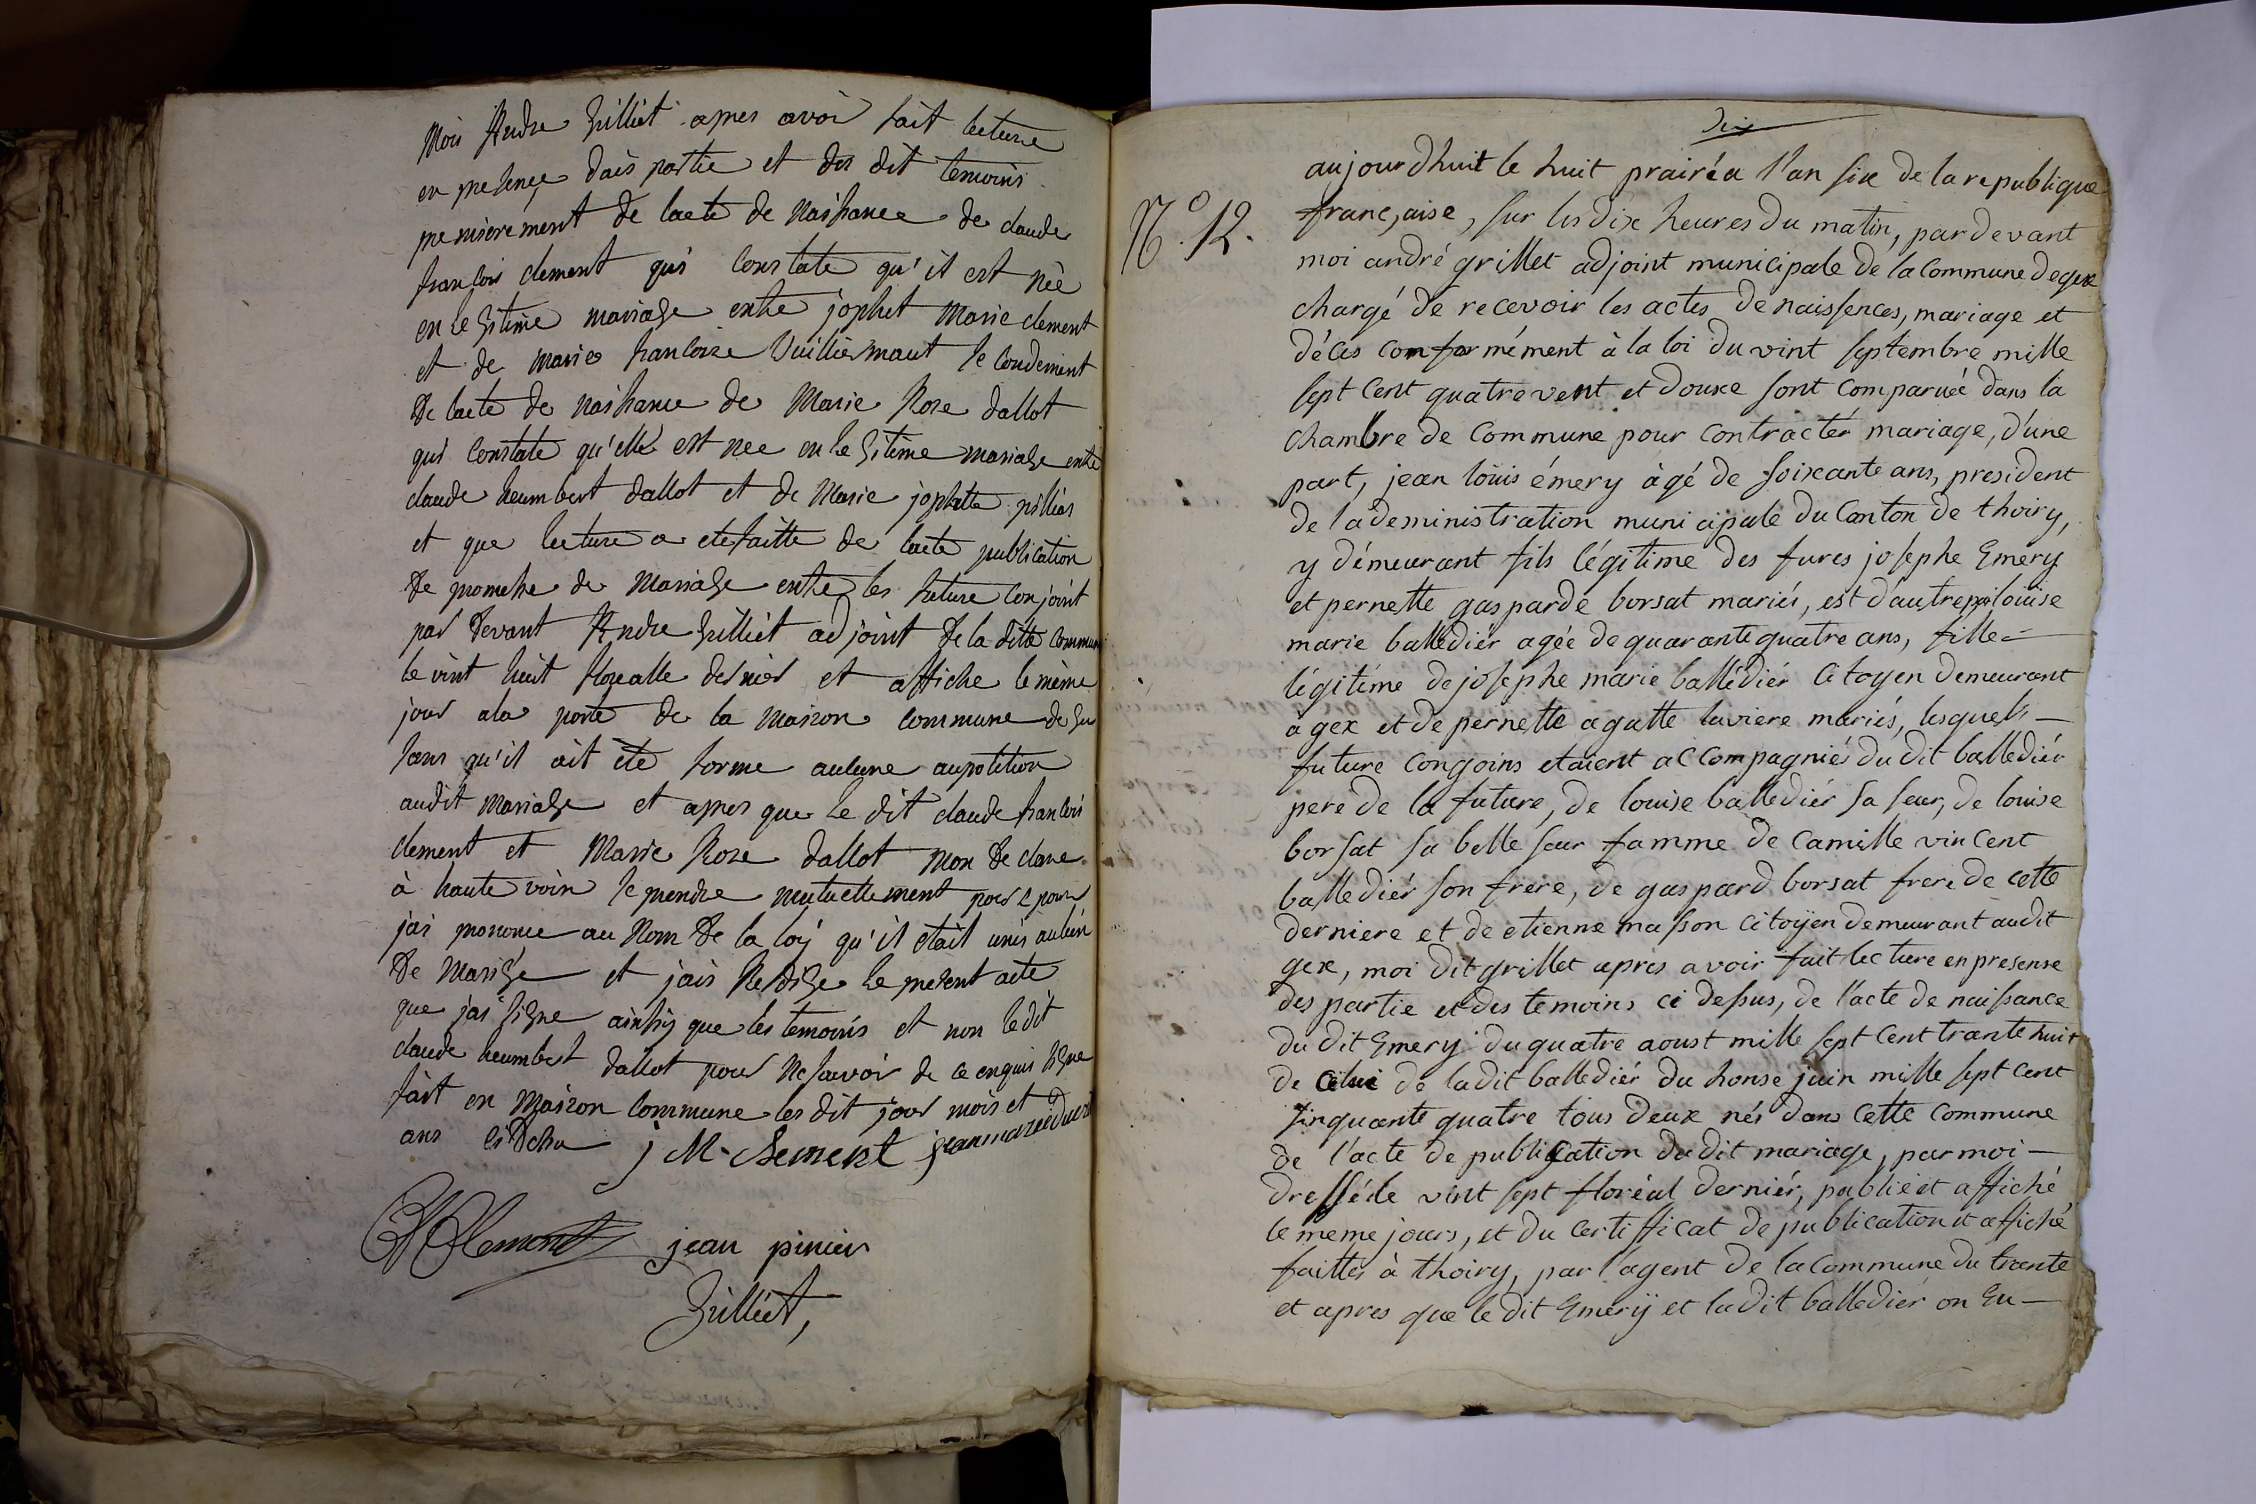 Moi Andre Grilliet apres avoir fait lecture
en presençe dais partie et des dit temoins
premierement de lacte de naissance de claude
francois clement qui constate qu'il est née
en legitime mariage entre jophet Marie clement
et de Marie francoise Vuilliermaut secondement
De lacte de naissance de Marie Rose dallot
qui constate qu'elle est nee en legitime mariage entre
claude heumbert dallot et de Marie jophette
et que lecture a ete faitte de lacte publication
De promesse de Mariage entre les future conjoint
par Devant Andre Grilliet adjoint De la ditte commune
le vint huit florealle dernier et affiche le mème
jour a la porte de la Maison commune de Gex
sans qu'il ait ète forme aucune aupotition
audit Mariage et apres que le dit claude francois
clement et Marie Rose dallot mon De clare
à haute voix se prendre mutuellement pour epoux
jai prononce au Nom De la loy qu'il etait unis au lien
De Mariage et jais Redige le present acte
que jai signe ainssy que les temoins et non ledit
claude heumbert dallot pour ne savoir de ce enquis signe
fait en Maison commune les dit jour mois et
ans cidesu j M. Clement jean marie
Clement jean pinier
Grilliet,
Dix
aujourdhuit le huit prairéa l'an six de la republique
N.º 12. franc,aise, sur les dix heures du matin, pardevant
moi andré grillet adjoint municipale de la Commune de gex
chargé de recevoir les actes de naissences, mariage et
déces comformément à la loi du vint septembre mille
sept cent quatrevent et douxe sont comparuéé dans la
chambre de Commune pour contracter mariage, d'une
part, jean louis émery àgé de soixcante ans, president
de l'adeministration municipale du Canton de thoiry,
y démeurant fils légitime des fures josephe Emery
et pernette gasparde borsat mariés, est d'autre part louise
marie balledier agée de quarante quatre ans, fille=
légitime de josephe marie ballédiér Citoyen demeurant
à gex et de pernette agatte laviere mariés, lesquels—
future congoins etaient accompagniés du dit ballediér
pere de la future, de louise ballediér sa seur, de louise
borsat sa belle seur famme de camille vincent
ballediér son frere, de gaspard borsat frere de cette
derniere et de etienne masson citoÿen demeurant audit
gex, moi dit grillet apres avoir fait lecture en presense
des partie et des temoins ci dessus, de l'acte de naissance
du dit Emery du quatre aoust mille sept cent trante huit
de celui de ladit ballediér du honse juin mille sept cent
sinquante quatre tous deux nés dans cette commune
de l'acte de publication du dit mariage, par moi—
dressé le vint sept floréal derniér, publié et affiché
le meme jours, et du certifficat de publication et affiché
faittes à thoiry, par l'agent de la Commune du trante
et apres que le dit Emerÿ et ladit balledier on Eu—